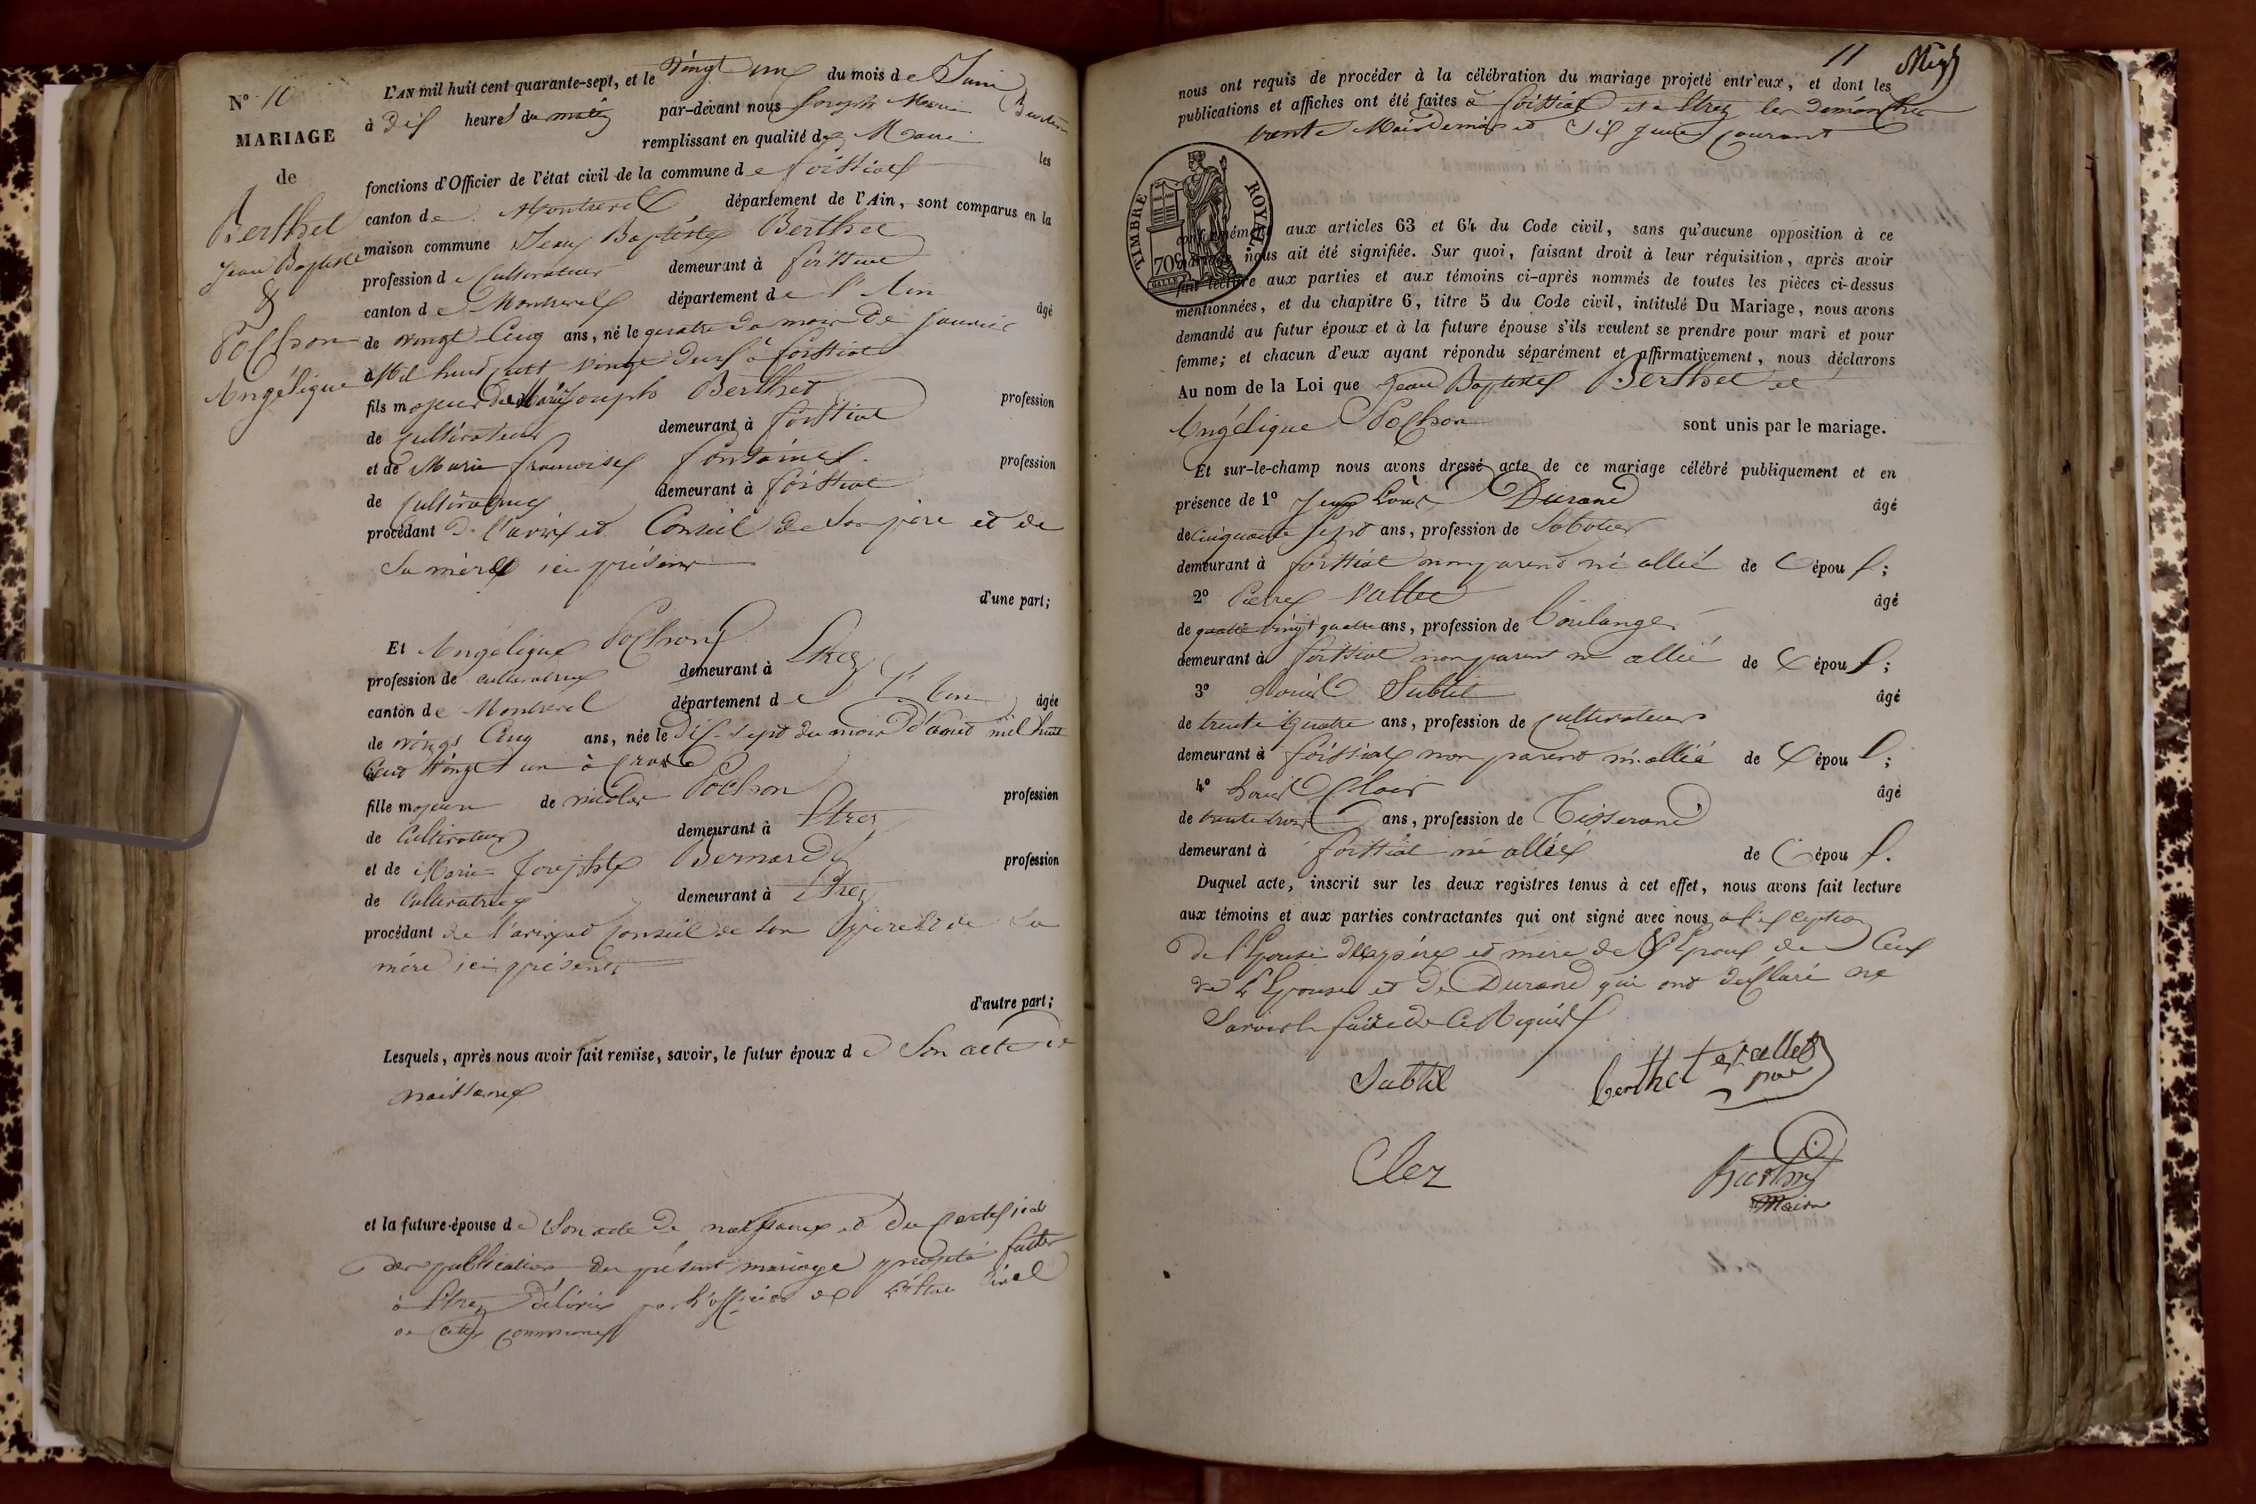 N° 11
MARIAGE
de
Berthet
Jean Baptiste
&
Pochon
Angélique
L'AN mil huit cent quarante-sept, et le vingt un du mois de Juin
à dix heures du matin par-devant nous Joseph Marie
remplissant en qualité de Maire les
fonctions d'Officier de l'état civil de la commune de foissiat
canton de Montrevel département de l'Ain, sont comparus en la
maison commune Jean Baptiste Berthet
profession de Cultivateur demeurant à foissiat
canton de Montrevel département de l'Ain âgé
de vingt Cinq ans, né le quatre du mois de Janvier
Mil huit cent vingt deux à foissiat
fils majeur de Marie Joseph Berthet profession
de cultivateur demeurant à foissiat
et de Marie françoise fontaine profession
de cultivatrice demeurant à foissiat
procédant de l'avis et Conseil de son père et de
sa mère ici présens
d'une part;
Et Angélique Pochon
profession de cultivatrice demeurant à Etrez
canton de Montrevel département de l'Ain âgée
de vingt Cinq ans, née le dix-sept du mois d'aout mil huit
cent vingt un à
fille majeure de nicolas Pochon profession
de Cultivateur demeurant à Etrez
et de Marie Josephte Bernard profession
de Cultivatrice demeurant à Etrez
procédant de l'avis et conseil de son père et de sa
mère ici présens
d'autre part;
Lesquels, après nous avoir fait remise, savoir, le futur époux de Son acte de
naissance
et la future épouse de Son acte de naissance et du certificat
de publication du présent mariage projeté faites
à Etrez délivré par l'officier de l'état Civil
de cette commune
11
nous ont requis de procéder à la célébration du mariage projeté entr'eux, et dont les
publications et affiches ont été faites à foissiat et à Etrez les dimanches
trente Mai dernier et six Juin courant
TIMBRE ROYAL.
70c
conformément aux articles 63 et 64 du Code civil, sans qu'aucune opposition à ce
mariage nous ait été signifiée. Sur quoi, faisant droit à leur réquisition, après avoir
fait lecture aux parties et aux témoins ci-après nommés de toutes les pièces ci-dessus
mentionnées, et du chapitre 6, titre 5 du Code civil, intitulé Du Mariage, nous avons
demandé au futur époux et à la future épouse s'ils veulent se prendre pour mari et pour
femme; et chacun d'eux ayant répondu séparément et affirmativement, nous déclarons
Au nom de la Loi que Jean Baptiste Berthet et
Angélique Pochon sont unis par le mariage.
Et sur-le-champ nous avons dressé acte de ce mariage célébré publiquement et en
présence de 1° Jean Louis Durand âgé
de cinquante sept ans, profession de Sabotier
demeurant à foissiat non parent ni allié de l'époux;
2° Pierre âgé
de quatre vingt quatre ans, profession de boulanger
demeurant à foissiat non parent ni allié de l'époux;
3° Louis Subtil âgé
de trente quatre ans, profession de cultivateur
demeurant à foissiat non parent ni allié de l'époux;
4° Louis Clair âgé
de trente trois ans, profession de Tisserand
demeurant à foissiat ni allié de l'époux.
Duquel acte, inscrit sur les deux registres tenus à cet effet, nous avons fait lecture
aux témoins et aux parties contractantes qui ont signé avec nous à l'exception
de l'Epouse des père et mère de l'Epoux de Ceux
de l'Epouse et de Durand qui ont déclaré ne
Savoir le faire de Ce Requis
Subtil berthet
Clez
Maire